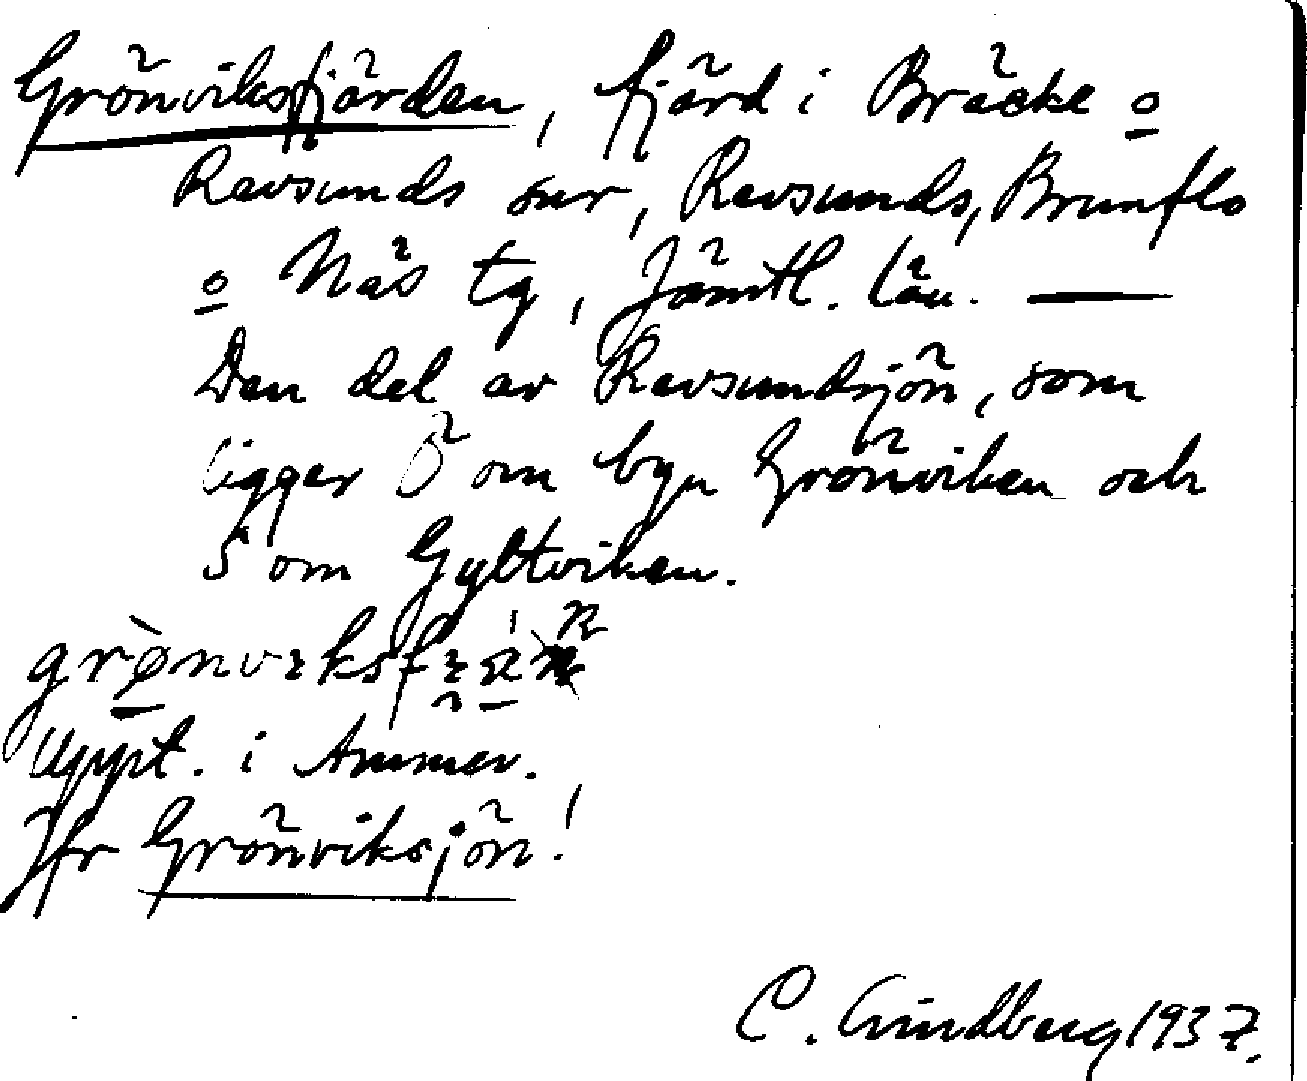 Grönviksfjärden, fjärd i Bräcke o
Revsunds snr, Revsunds, Brunflo
o Näs tg, Jämtl. län. —
Den del av Revsundsjön, som
ligger Ö om byn Grönviken och
S om Gyltviken.
Uppt. i Ammer.
Jfr Grönviksjön!
C. Lindberg 1937.